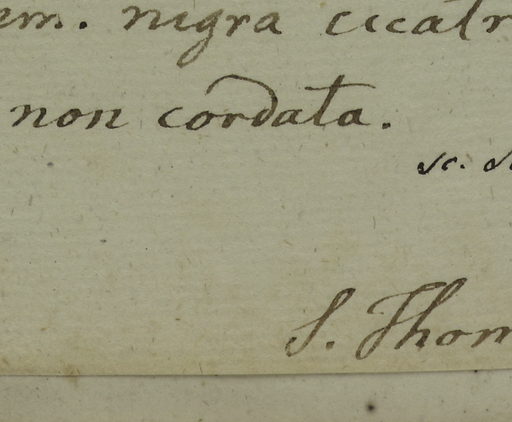 em. nigra cicatr
non cordata.
sc. S
S. Thom